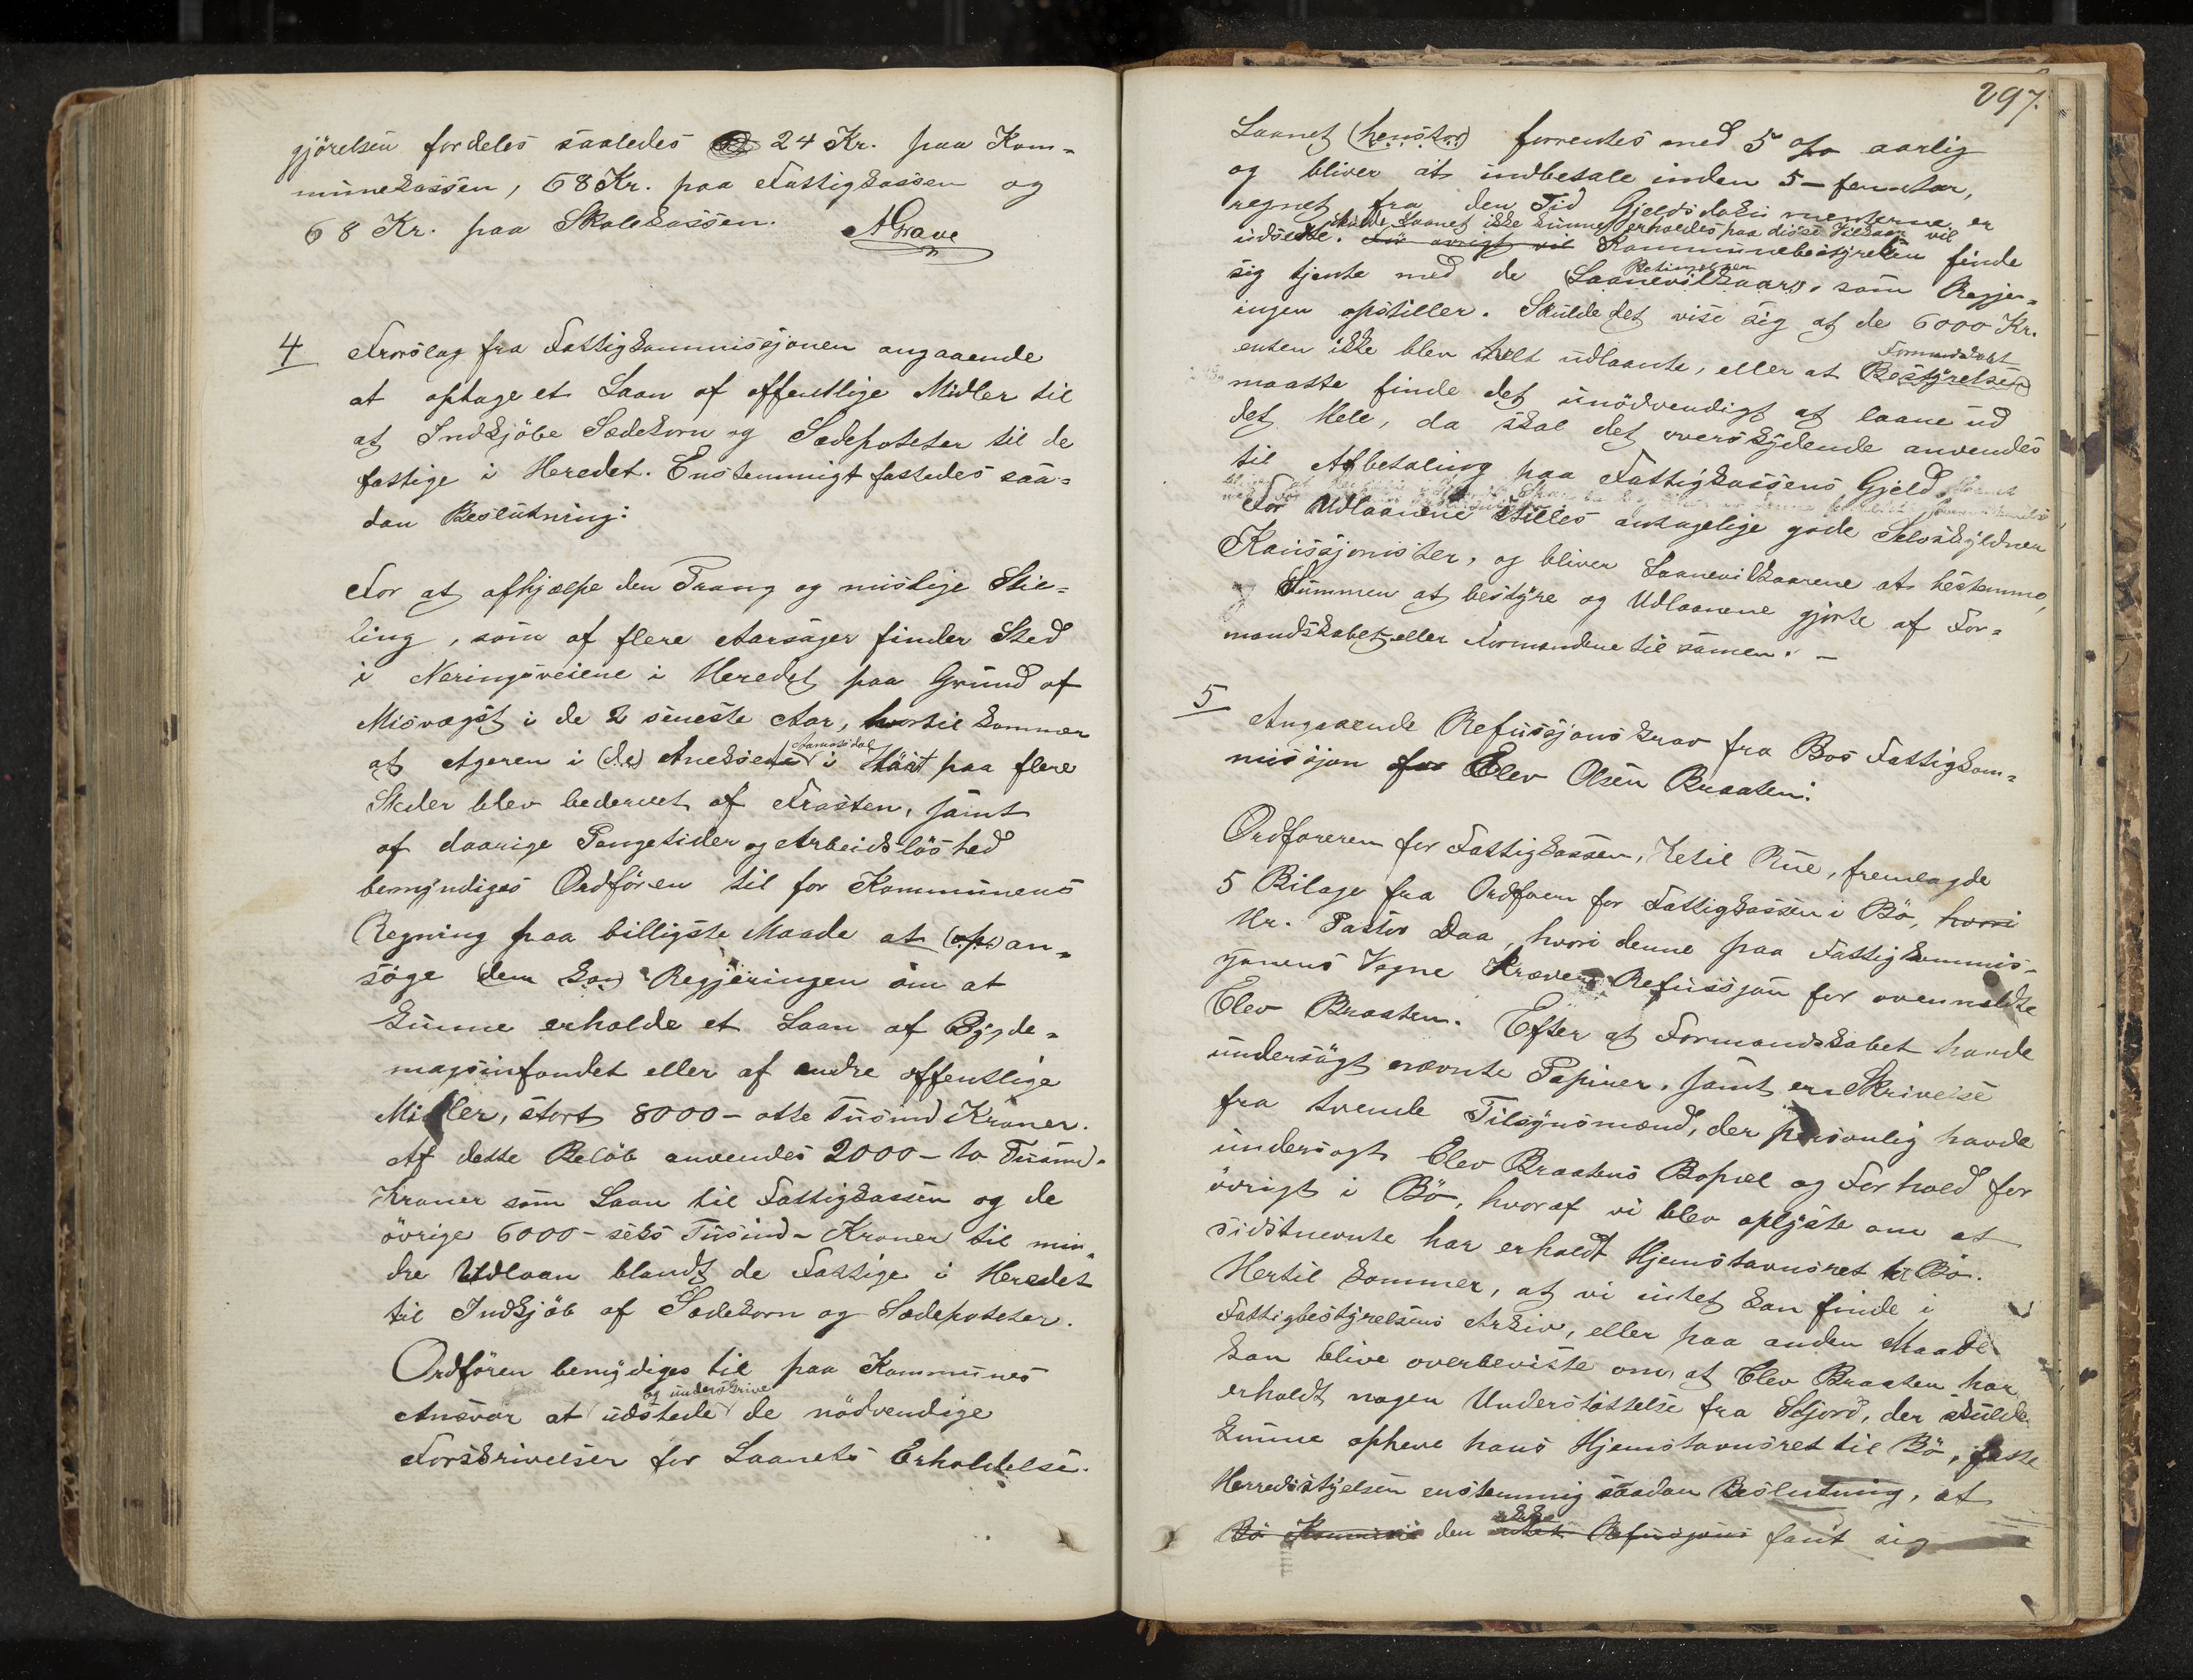 gjörelsen fordeles saaledes 24 Kr. paa Kom-
munekassen, 68 Kr. paa Fattigkassen og
68 Kr. paa Skolekassen. AGrave
4 Forslag fra Fattigkommissjonen angaaende
at optage et Laan af offentlige Midler til
at Indkjöbe Sædekorn og Sædepoteter til de
fattige i Heredet. Enstemmigt fattedes saa-
dan Beslutning:
For at afhjælpe den Trang og mislige Stil-
ling, som af flere Aarsager finder Sted
i Næringsveiene i Heredet paa Grund af
Misvægst i de 2 seneste Aar, hvortil kommer
at Ageren i (de) Aneksene i Höst paa flere
Steder blev bedervet af Frosten, samt
af daarige Pengetider og Arbeidslöshed
bemyndiges Ordfören til for Kommunens
Regning paa billigste Maade at (op) an-
söge (dem kon) Regjeringen om at
kunne erholde et Laan af Bygde-
magsinfondet eller af andre offentlige
Midler, stort 8000 - otte Tusind Kroner.
Af dette Belöb anvendes 2000 - to Tusind-
Kroner som Laan til Fattigkassen og de
övrige 6000 - seks Tusind - Kroner til min-
dre Udlaan blandt de Fattige i Heredet
til Indkjöb af Sædekorn og Sædepoteter.
Ordfören bemydiges til paa Kommunes
og underskrive
Ansvar at udstede de nödvendige
Forskrivelser for Laanets Erholdelse.
297.
Laanet (henstor) forrentes med 5 o/o aarlig
og bliver at indbetale inden 5 - fem Aar,
regnet fra den Tid Gjeldsdokumenterne er
skulde Laanet ikke kunne erholdes paa disse Vilkaar vil
udstedte. For övrigt vil Kommunebestyrelsen finde
Betingelser
sig tjente med de (Laanevilkaar), som Regjer-
ingen opstiller. Skulde det vise sig at de 6000 Kr.
Formandskabet
enten ikke blev helt udlaante, eller at (Bestyrelsen)
maatte finde det unödvendigt at laane ud
det Hele, da skal det overskydende anvendes
til Afbetaling paa Fattigkassens Gjeld.
For Udlaanene stilles antagelige gode Selvskyldner
Kaussjonister, og bliver Laanevilkaarene at bestemme,
Summen at bestyre og Udlaanene gjorte af For-
mandskabet eller Formændene til samen. -
5 Angaaende Refussjonskrav fra Bös Fattigkom-
missjon for Elev Olsen Braaten:
Ordföreren for Fattigkassen, Ketil Rue, fremlagde
5 Bilage fra Ordfören for Fattigkassen i Bö, hvori
Hr. Pastor Daa, hvori denne paa Fattigkommis-
jonens Vegne kræver Refussjon for ovenmeldte
Elev Braaten. Efter at Formandskabet havde
undersögt nævnte Papirer, samt en Skrivelse
fra tvende Tilsynsmænd, der personlig havde
undersögt Elev Braatens Bopæl og Forhold for
övrigt i Bö, hvoraf vi blev oplyste om at
sidstnevnte har erholdt Hjemstavnsret til Bö.
Hertil kommer, at vi intet kan finde i
Fattigbestyrelsens Arkiv, eller paa anden Maade
kan blive overbeviste om, at Elev Braaten har
erholdt nogen Understöttelse fra Seljord, der skulde
kunne ophæve hans Hjemstavnsret til Bö, fatte
Herredsstyelsen enstemmig saadan Beslutning, at
Bö Kommune den ikke Refusjons fant sig